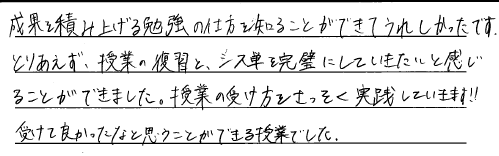 成果を積み上げる勉強の仕方を知ることができてうれしかったです.
とりあえず、授業の復習と、シス単を完璧にしていきたいと感じ
ることができました。授業の受け方もさっそく実践していきます!!
受けて良かったなと思うことができる授業でした.